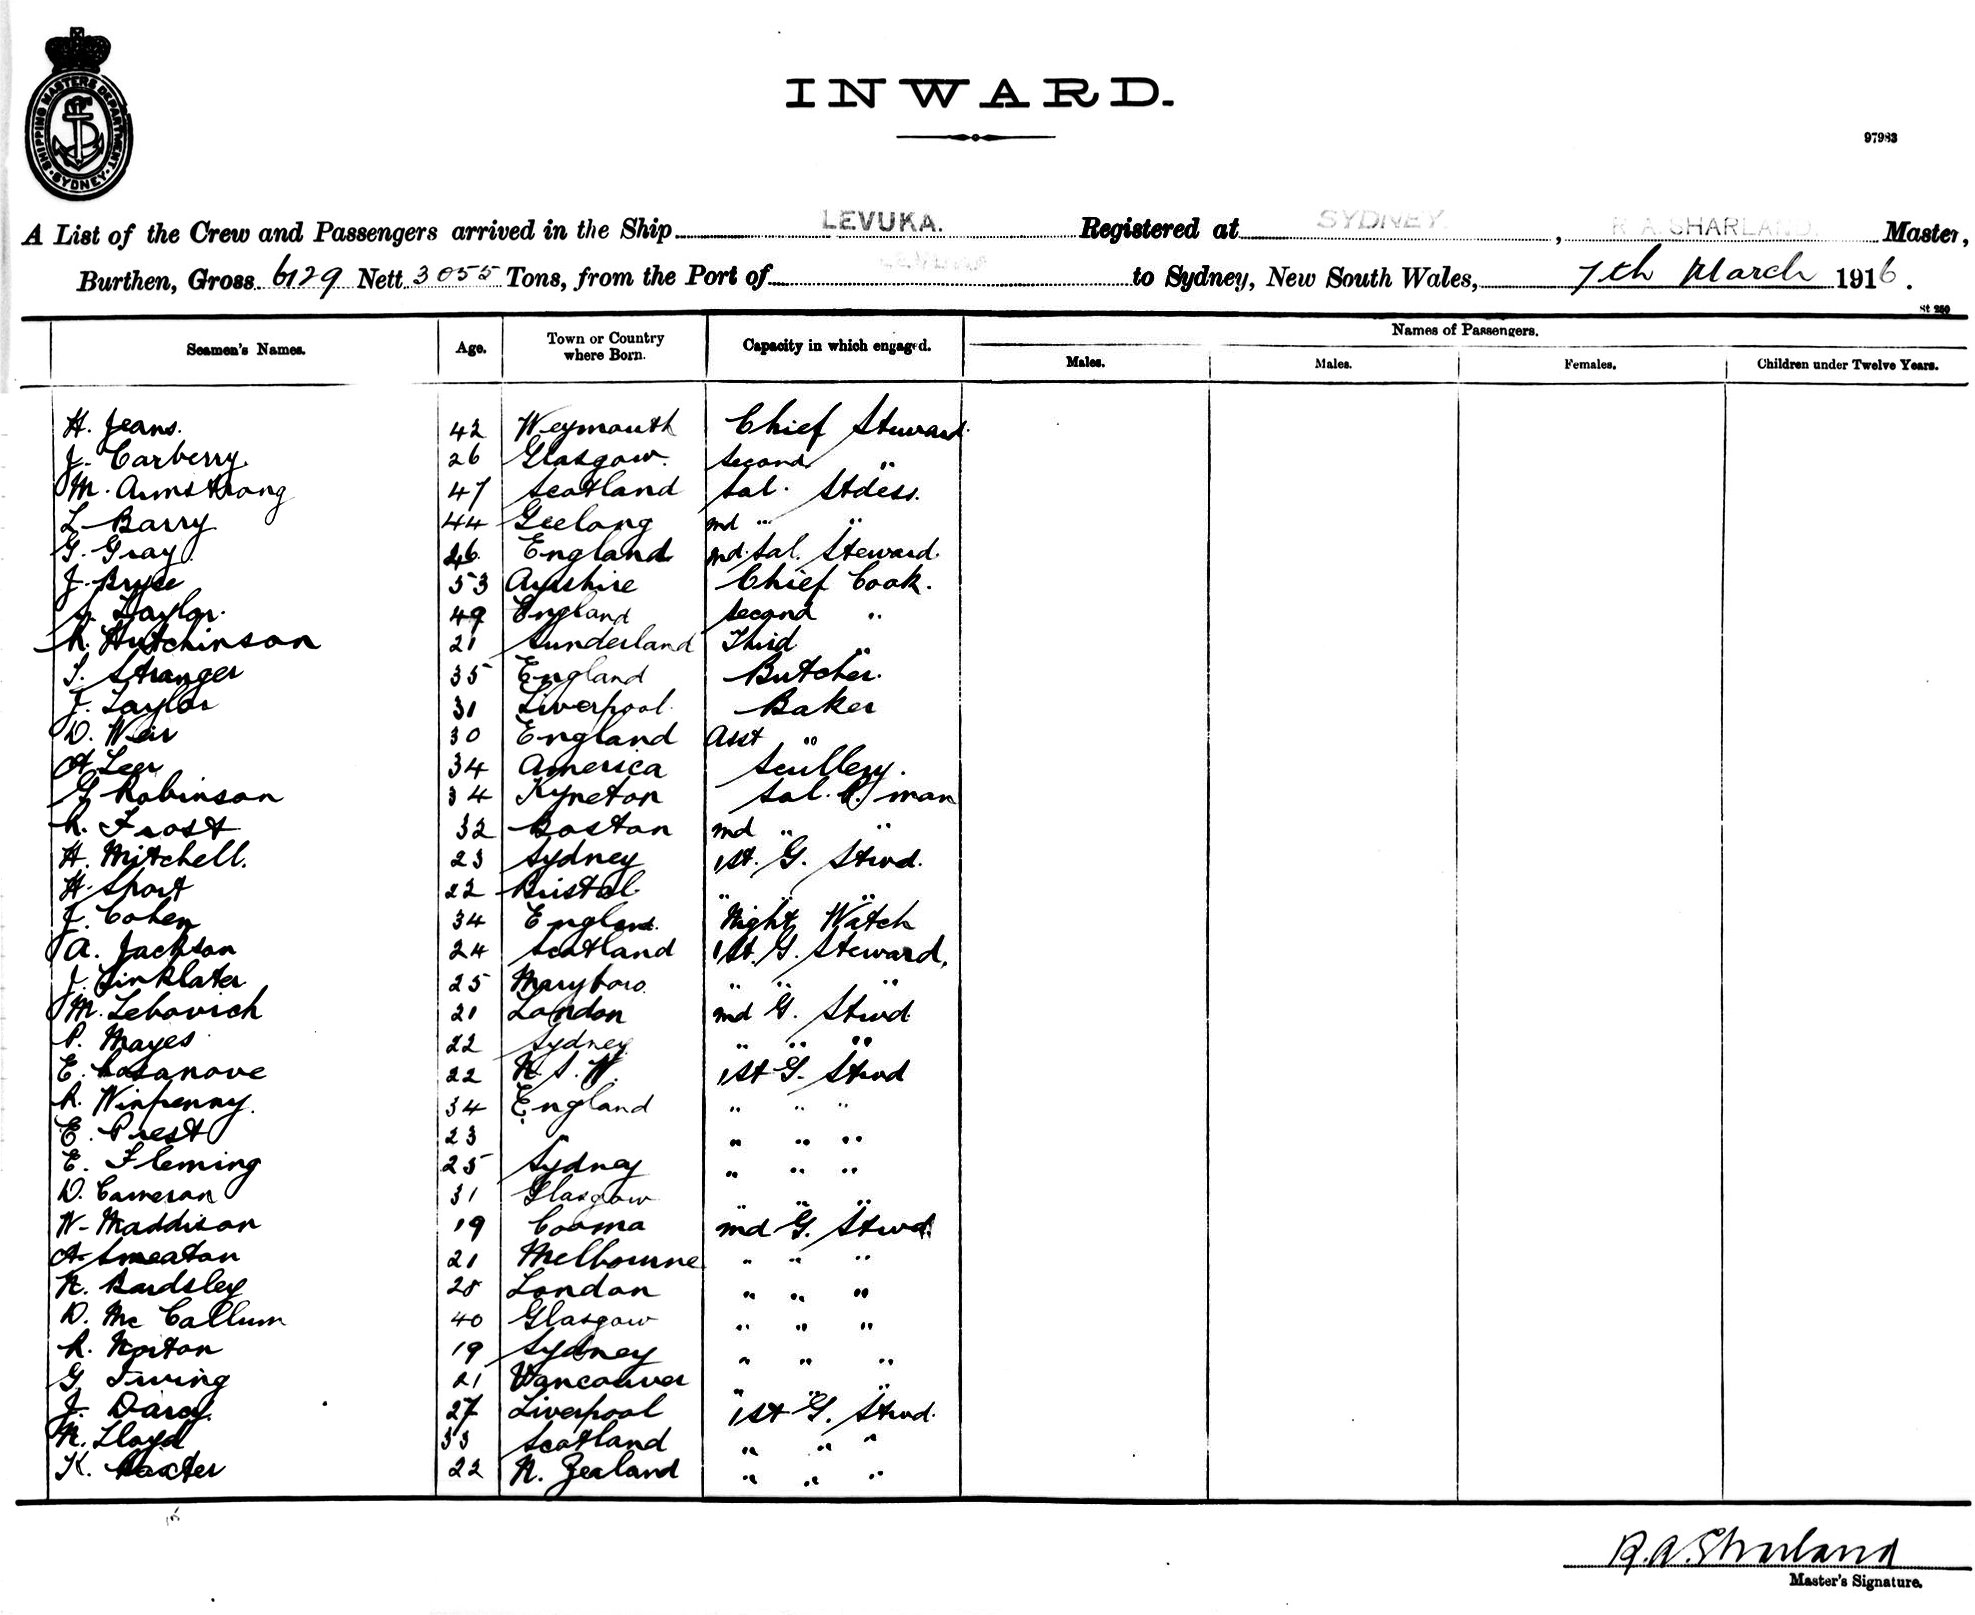 SHIPPING MASTERS DEPARTMENT · SYDNEY ·
INWARD.
97983
A List of the Crew and Passengers arrived in the Ship LEVUKA. Registered at SYDNEY. , R. A. SHARLAND. Master,
Burthen, Gross 6129 Nett 3055 Tons, from the Port of to Sydney, New South Wales, 7th March 1916.
St 250
Seamen's Names. Age. Town or Country where Born. Capacity in which engaged. Names of Passengers.
Males. Males. Females. Children under Twelve Years.
H. Jeans. 42 Weymouth Chief Steward.
J. Carberry. 26 Glasgow. Second "
M. Armstrong 47 Scotland Sal. Stdess.
L. Barry 44 Geelong md " "
G. Gray 26 England md. Sal. Steward.
J. Bryce 53 Ayrshire Chief Cook.
Taylor. 49 England Second "
R. Hutchinson 21 Sunderland Third "
S. Stranger 35 England Butcher.
J. Taylor 31 Liverpool. Baker
D. Weir 30 England Asst "
A. Leer 34 America Scullery.
G. Robinson 34 Kyneton Sal. P. man
R. Frost 32 Boston md " "
H. Mitchell. 23 Sydney 1st. G. Stwd.
H. Short 22 Bristol. " " "
J. Cohen 34 England. Night Watch
A. Jackson 24 Scotland 1st. G. Steward.
J. Linklater 25 Maryboro. " " "
M. Lebovich 21 London md G. Stwd.
P. Mayes 22 Sydney " " "
E. Casanove 22 N. S. W. 1st G. Stwd
R. Winpenny. 34 England " " "
E. Prest 23 " " " "
E. Fleming 25 Sydney " " "
D. Cameron 31 Glasgow " " "
W. Maddison 19 Cooma md G. Stwd.
A. Smeaton 21 Melbourne " " "
N. Bardsley 28 London " " "
D. Mc Callum 40 Glasgow " " "
R. Norton 19 Sydney " " "
G. Irving 21 Vancouver " " "
J. Darcy. 27 Liverpool 1st G. Stwd.
N. Lloyd 33 Scotland " " "
K. Baxter 22 N. Zealand " " "
R. A. Sharland
Master's Signature.